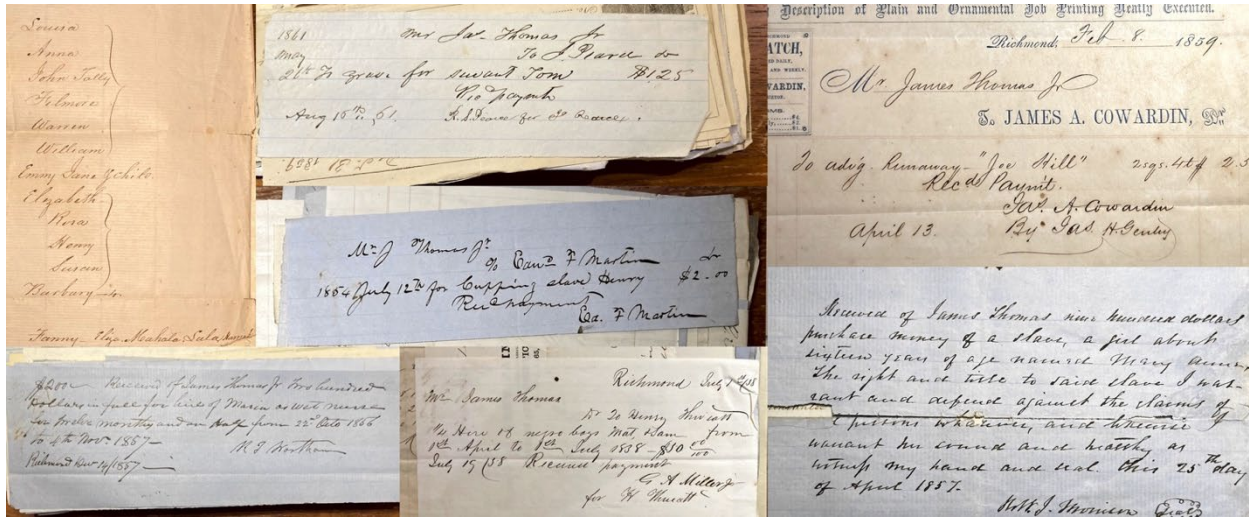 Louisa
Anna
John Tally
Filmore
Warren
William
Emmy Jane & child
Elizabeth
Rosa
Henry
Susan
Barbary
Fanny Eliza Mahala Sula
1861 Mr Jas. Thomas Jr
May To J. Pearce Dr
21st To grave for servant Tom $1.25
Rec'd payment
Aug 15th 61.
Mr J Thomas Jr
To Edwd F Martin Dr
1854 July 12th for Cupping slave Henry $2.00
Recd payment
Ed. F Martin
Description of Plain and Ornamental Job Printing Neatly Executed.
ATCH,
WARDIN,
Richmond, Feb. 8. 1859.
Mr. James Thomas Jr
To JAMES A. COWARDIN, Dr
To advg. Runaway "Joe Hill" 2 sqs. 4t 2.5
Recd Paymt.
Jas. A. Cowardin
April 13. By Jas H Gentry
$200 Received of James Thomas Jr Two hundred
Dollars in full for hire of Maria as wet nurse
for twelve months and an half from 22nd Octo 1856
to 4th Novr 1857—
Richmond Novr 14/1857
Richmond July 1858
Mr James Thomas
To Henry
To Hire of negro boys Mat & Sam from
1st April to 1st July 1858 — $50 00/100
July 19/58 Received payment
G A Miller Jr
for H
Received of James Thomas nine hundred dollars
purchase money of a slave, a girl about
sixteen years of age named Mary Anne,
The right and title to said slave I war-
rant and defend against the claims of
persons whatever, and likewise I
warrant her sound and healthy as
witness my hand and seal this 25th day
of April 1857.
Robt. J. Morrison Seal